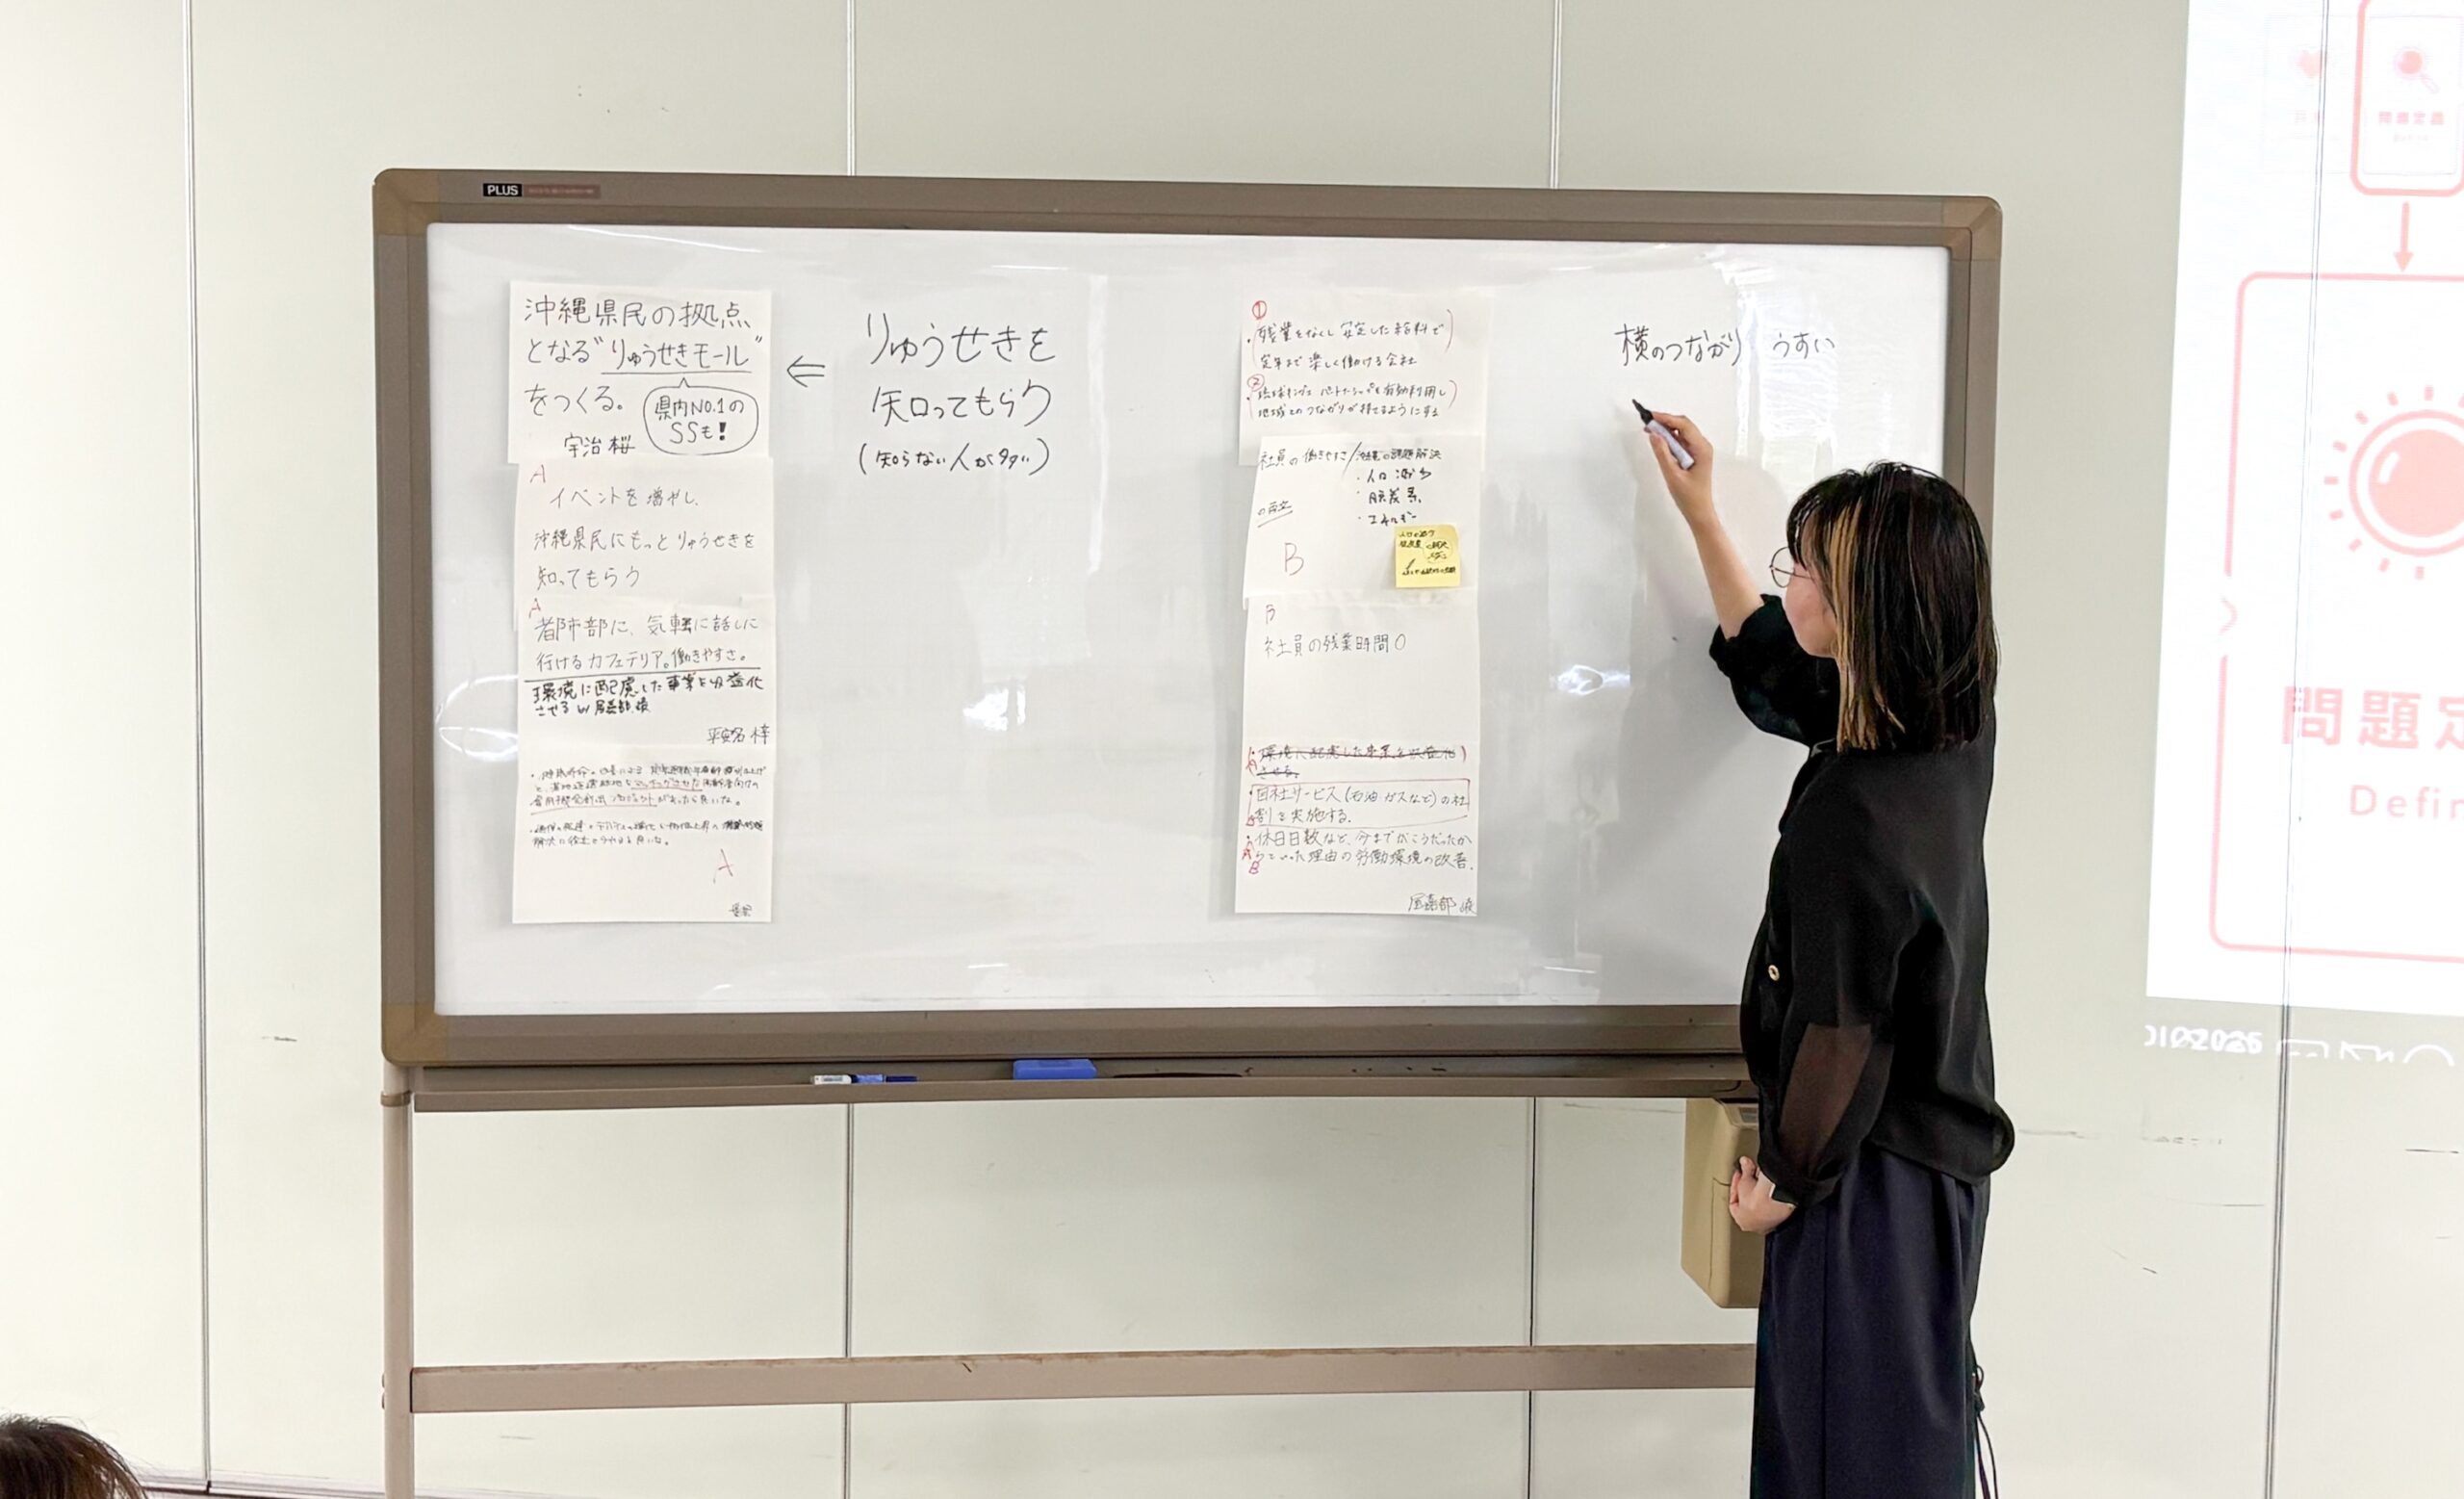 PLUS
沖縄県民の拠点
となる"りゅうせきモール"
をつくる。
県内NO.1の
SSも!
宇治 桜
A
イベントを増やし、
沖縄県民にもっとりゅうせきを
知ってもらう
A
都市部に、気軽に話しに
行けるカフェテリア。働きやすさ。
環境に配慮した事業を収益化
させる
平安名 梓
A
⇐
りゅうせきを
知ってもらう
(知らない人が多い)
①
・残業をなくし安定した給料で
定年まで楽しく働ける会社
②
地域とのつながりが持てるようにする
社員の働きやすさ/沖縄の課題解決
・人口減少
・脱炭素
・エネルギー
の両立
B
B
社員の残業時間0
・環境に配慮した事業を収益化
させる。
・自社サービス(石油ガスなど)の社
割を実施する。
・休日日数など、今までがこうだったか
らといった理由の労働環境の改善。
A
B
横のつながり うすい
問題定義
問題定
Defin